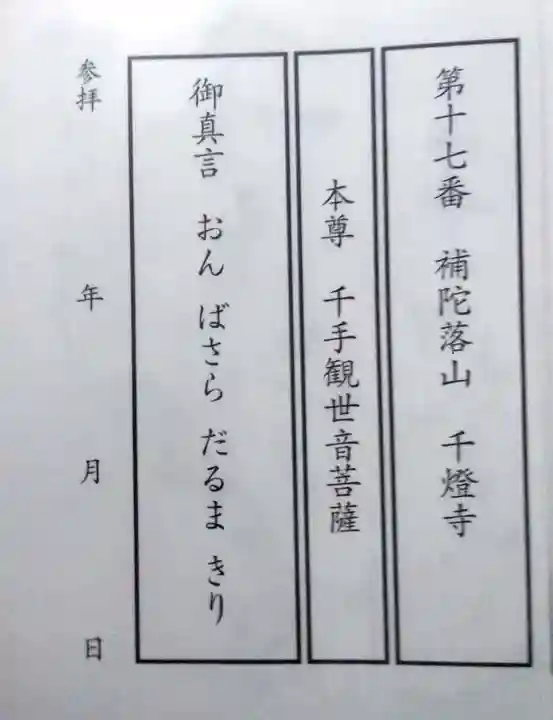 第十七番　補陀落山　千燈寺
本尊　千手観世音菩薩
御真言　おん　ばさら　だるま　きり
参拝　年　月　日